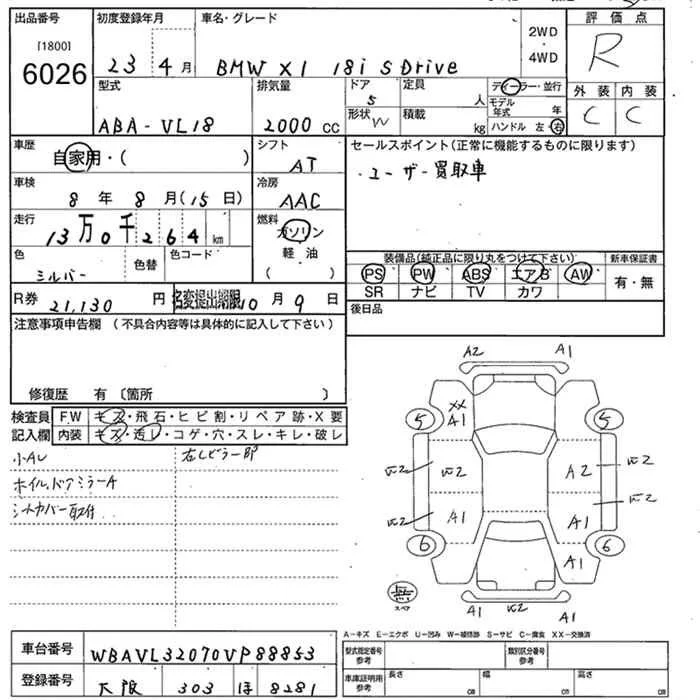 出品番号
[1800]
6026
初度登録年月
23 4 月
車名・グレード
BMW X1 18i S Drive
2WD
4WD
評価点
R
型式
ABA-VL18
排気量
2000 CC
ドア
5
形状 W
定員
人
積載
kg
ディーラー・並行
モデル年式 年
ハンドル 左・右
外装 内装
C C
車歴
自家用・( )
シフト
AT
セールスポイント(正常に機能するものに限ります)
・ユーザー買取車
車検
8 年 8 月(15 日)
冷房
AAC
走行
13 万 0 千 2 6 4 km
燃料
ガソリン
軽油
( )
色
シルバー
色替
色コード
装備品(純正品に限り丸をつけて下さい)
新車保証書
PS PW ABS エアB AW
SR ナビ TV カワ
有・無
R券 21,130 円
名変提出期限 10 月 9 日
後日品
注意事項申告欄 (不具合内容等は具体的に記入して下さい)
修復歴 有 〔箇所 〕
検査員
記入欄
FW キズ・飛石・ヒビ割・リペア跡・X要
内装 キズ・汚レ・コゲ・穴・スレ・キレ・破レ
小AU
ホイル、ドアミラーA
シートカバー取付
A2 A1
XX
A1
5 5
A2
A1 A1
6 6
A1
無
スペア
A1 A1
A-キズ E-エクボ U-凹み W-補修跡 S-サビ C-腐食 XX-交換済
車台番号
WBAVL32070VP88853
登録番号
大阪 303 ほ 8281
型式指定番号
参考
類別区分番号
参考
車庫証明用
参考
長さ cm
幅 cm
高さ cm